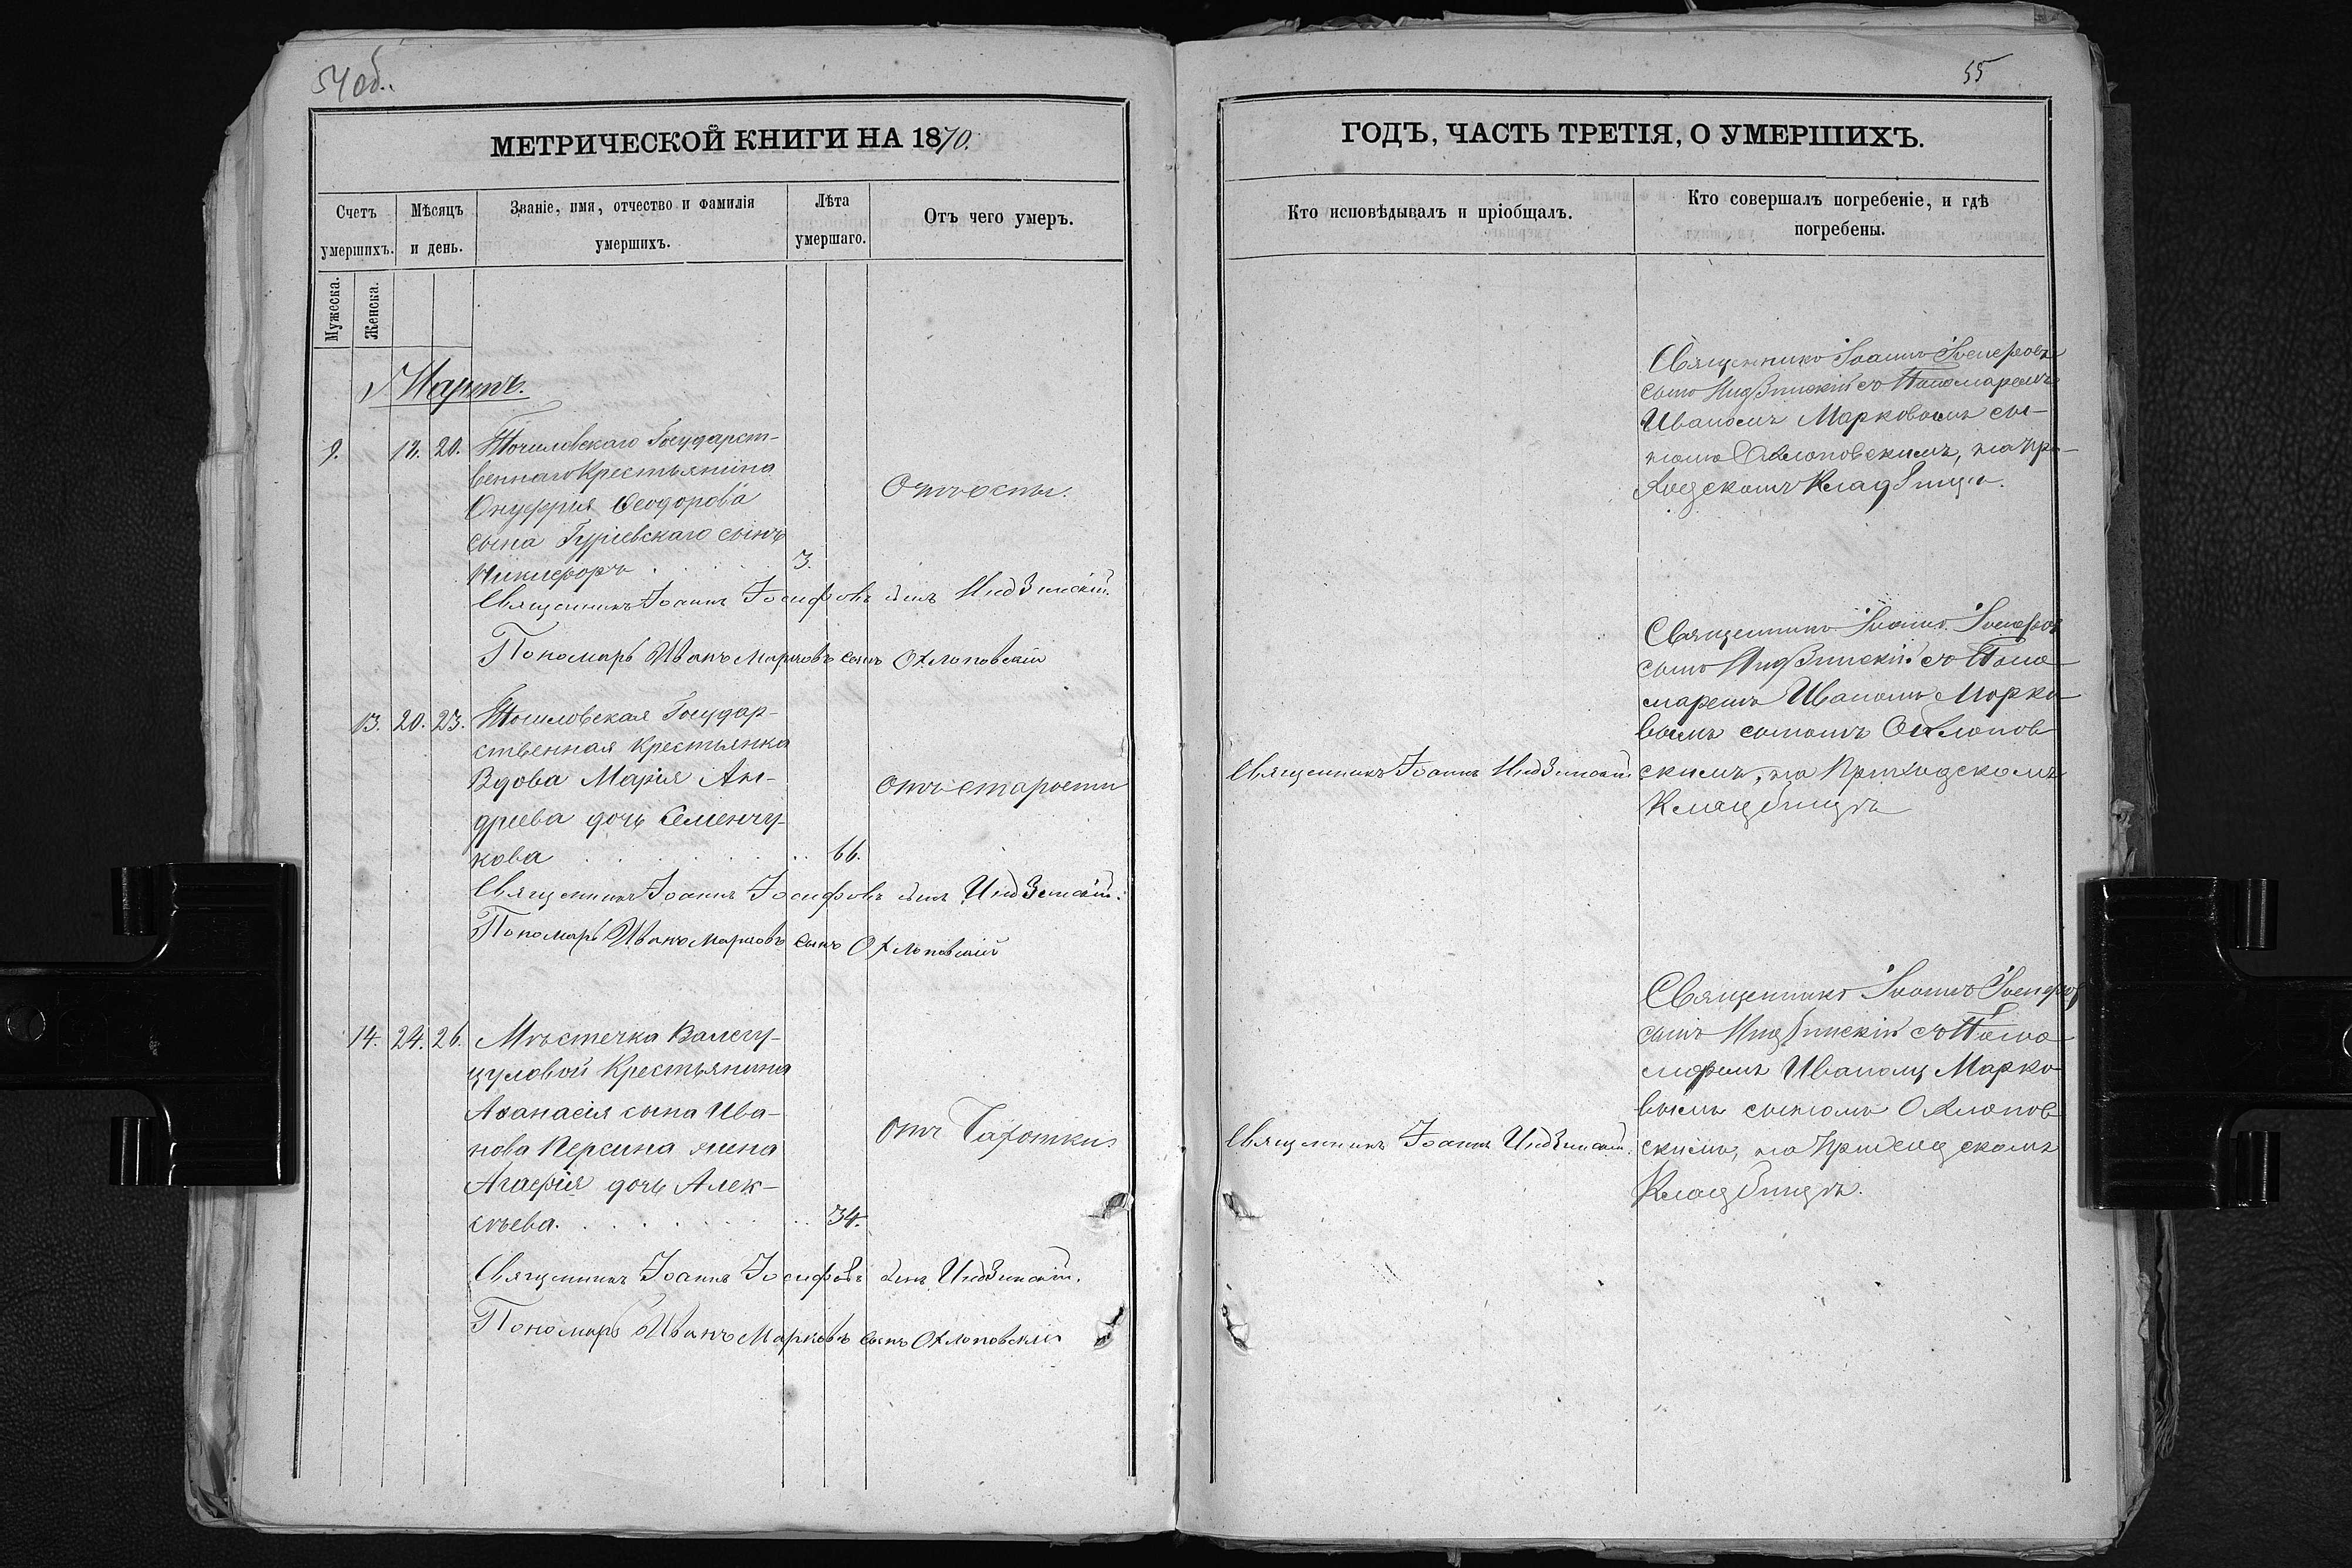 54 об.
МЕТРИЧЕСКОЙ КНИГИ НА 1870.
Счетъ умершихъ.
Мѣсяцъ и день.
Званіе, имя, отчество и фамилія умершихъ.
Лѣта умершаго.
Отъ чего умеръ.
Мужеска.
Женска.
Мартъ.
9. 18. 20. Точиловскаго Государст-
веннаго Крестьянина
Онуфрия Ѳеодорова
сына Гуріевскаго сынъ
Никифоръ . . . . 3.
Отъ оспы.
Священникъ Іоаннъ Іосифовъ сынъ
Пономарь Иванъ Марковъ сынъ Охлоповскій
13. 20. 23. Точиловская Государ-
ственная крестьянка
Вдова Марія Ан-
дреева дочь Семенчу-
кова . . . . . . 66.
отъ старости
Священникъ Іоаннъ Іосифовъ сынъ
Пономарь Иванъ Марковъ сынъ Охлоповскій
14. 24. 26. Мѣстечка Валегу-
цуловой Крестьянина
Аѳанасія сына Ива-
нова Персина жена
Агафія дочь Алек-
сѣева. . . . . . 34.
отъ Чахотки
Священникъ Іоаннъ Іосифовъ сынъ
Пономарь Иванъ Марковъ сынъ Охлоповскій
55
ГОДЪ, ЧАСТЬ ТРЕТІЯ, О УМЕРШИХЪ.
Кто исповѣдывалъ и пріобщалъ.
Кто совершалъ погребеніе, и гдѣ погребены.
Священникъ Іоаннъ Іосифовъ
сынъ съ Пономаремъ
Иваномъ Марковымъ сы-
номъ Охлоповскимъ, на при-
ходскомъ Кладбищѣ.
Священникъ Іоаннъ
Священникъ Іоаннъ Іосифов
сынъ съ Поно
маремъ Иваномъ Марко
вымъ сыномъ Охлопов
скимъ, на Приходскомъ
Кладбищѣ
Священникъ Іоаннъ
Священникъ Іоаннъ Іосифов
сынъ съ Поно
маремъ Иваномъ Марко
вымъ сыномъ Охлопов
скимъ, на Приходскомъ
Кладбищѣ.